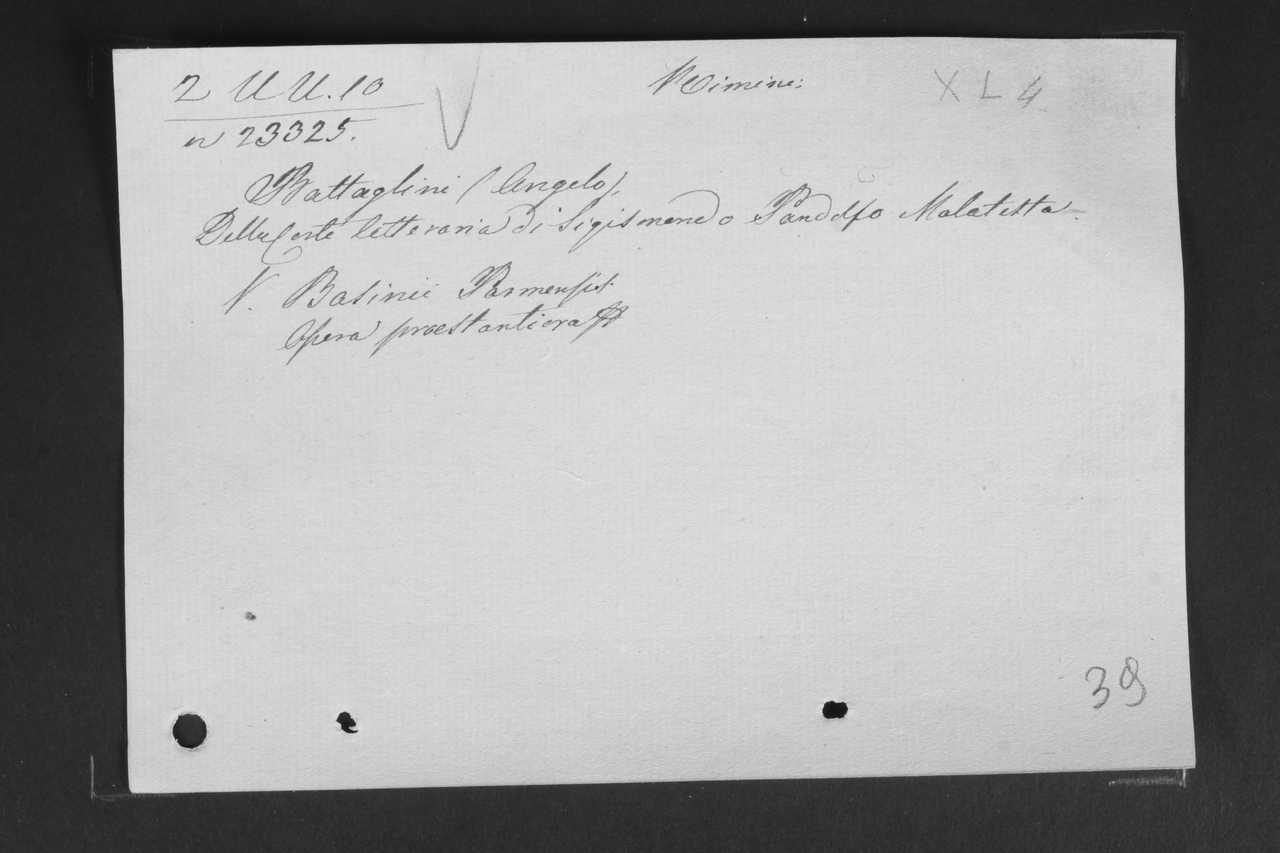 2 UU.10
Rimini:
XL 4
n 23325.
Battaglini (Angelo),
Della Corte letteraria di Sigismondo Pandolfo Malatesta
V. Basinii Parmensis
Opera praestantiora
39